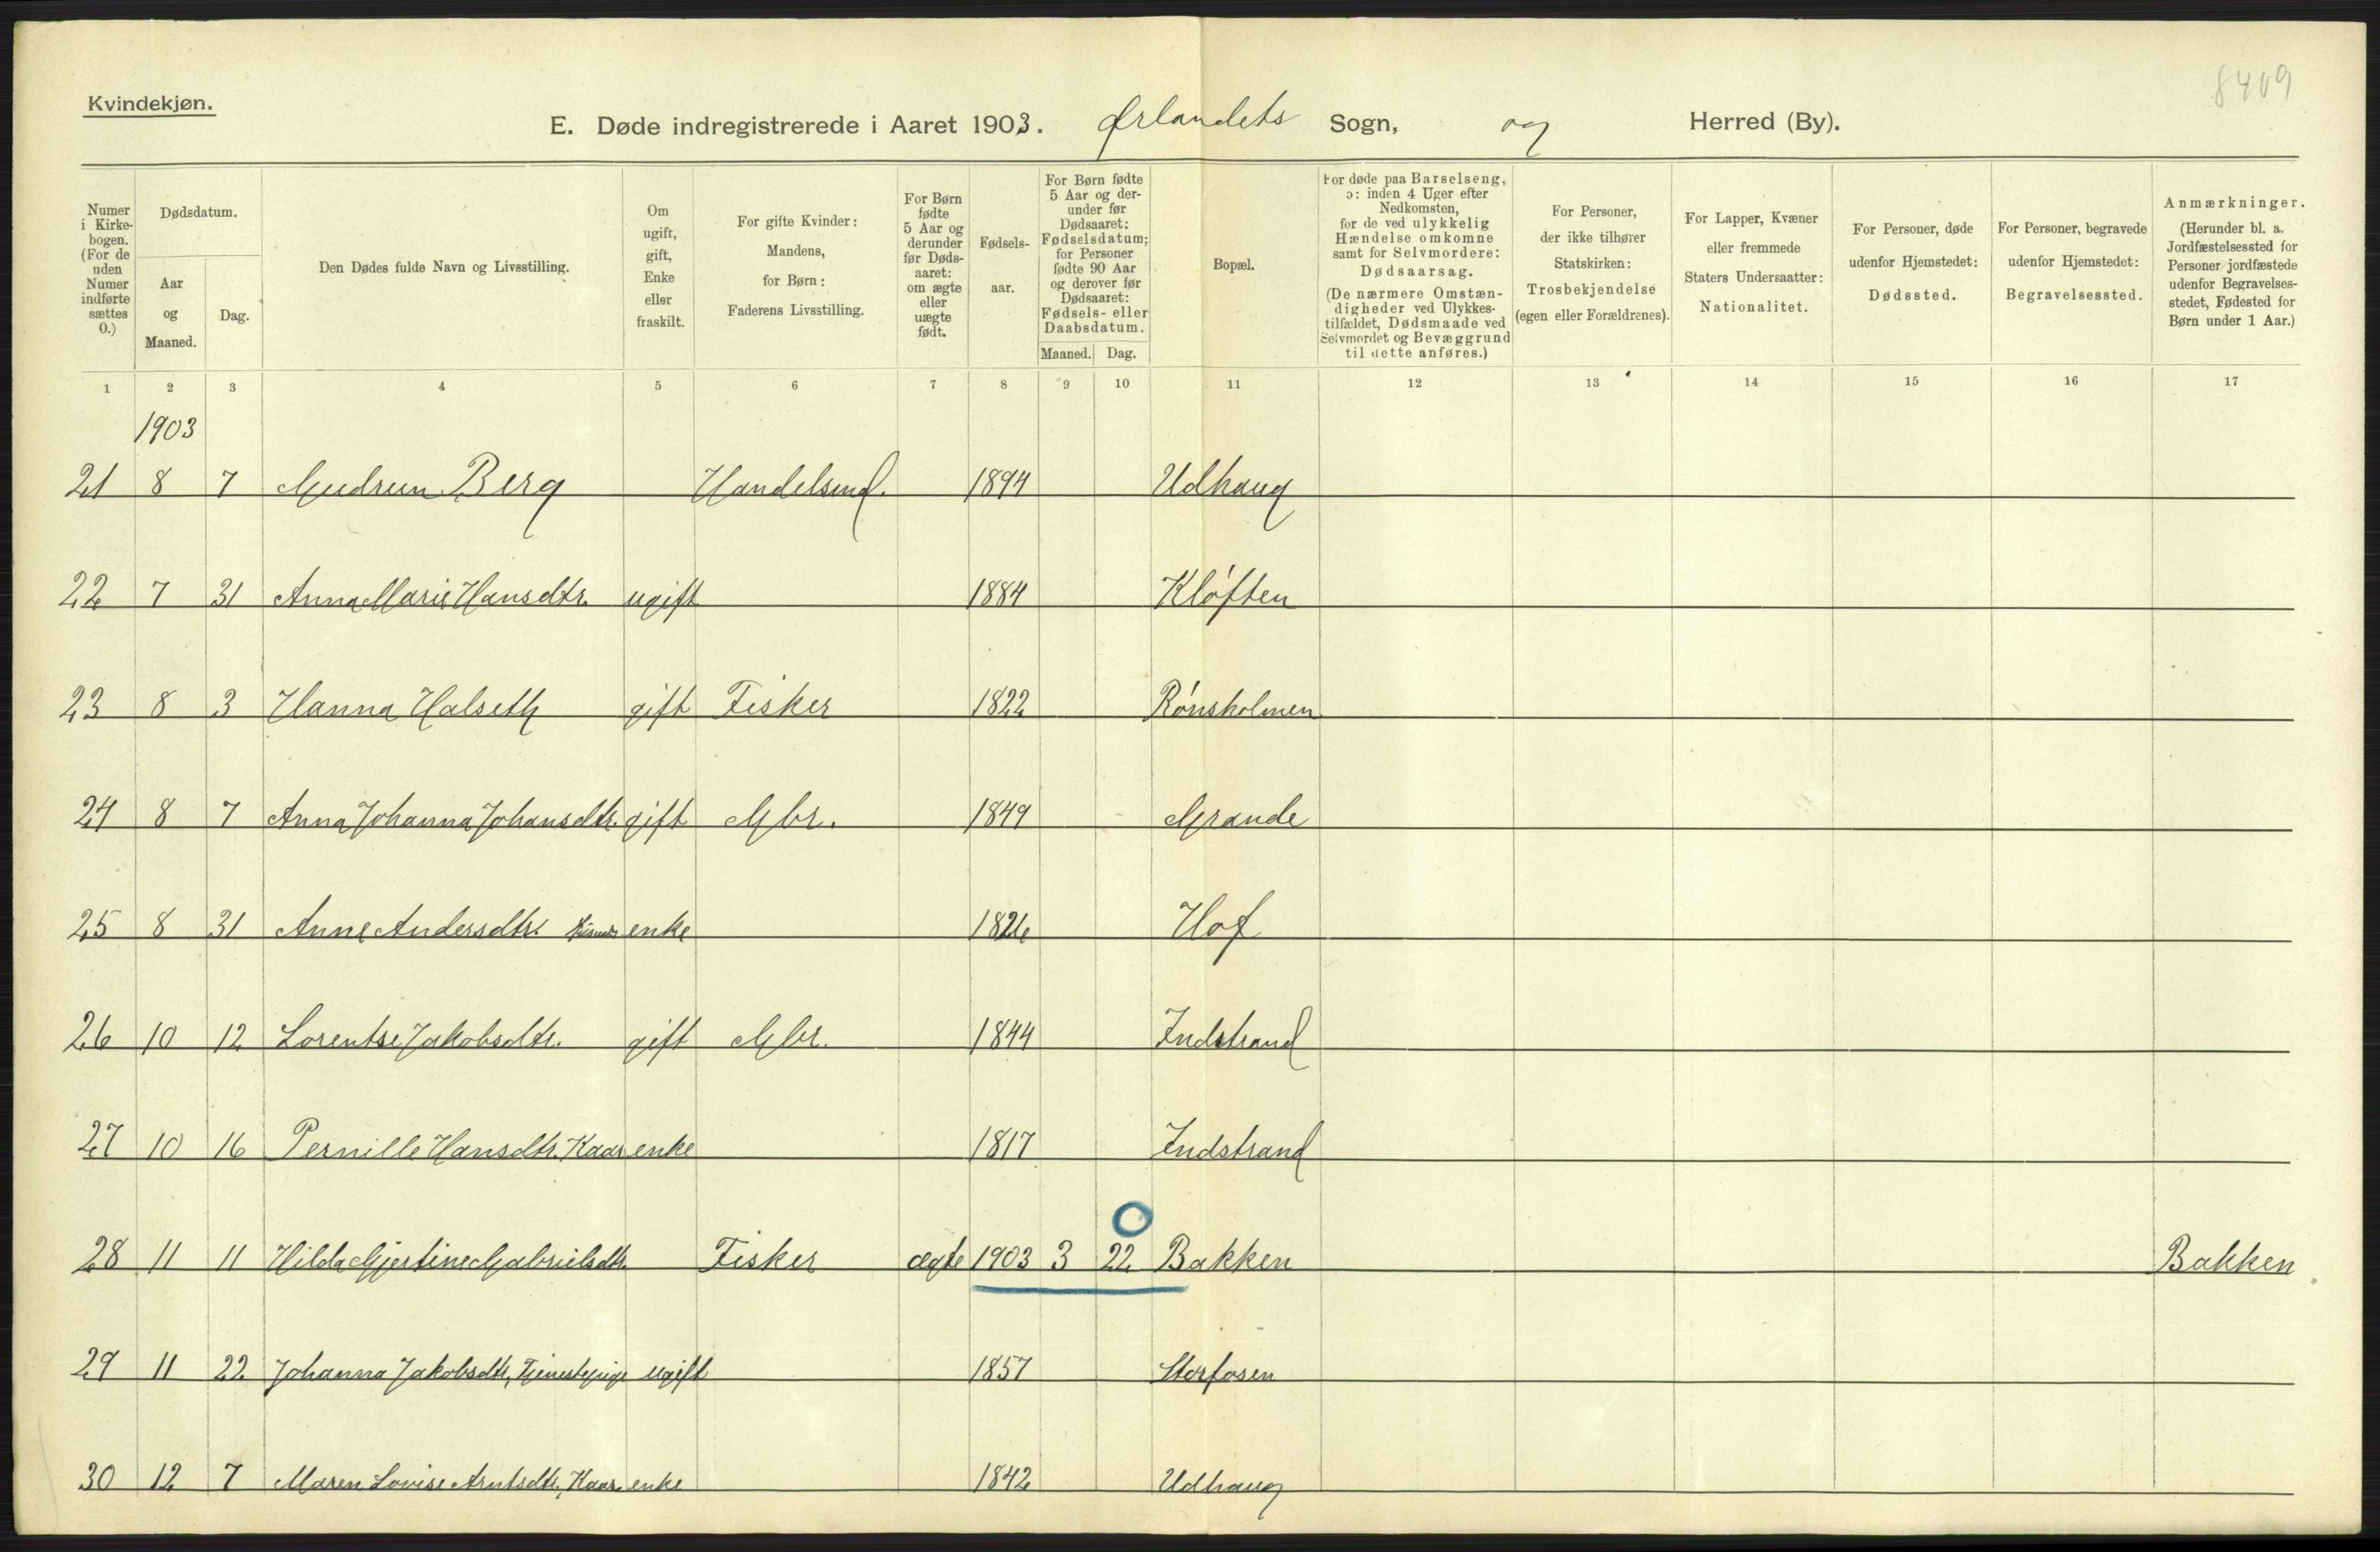 8409
Kvindekjøn.
E. Døde indregistrerede i Aaret 1903. Ørlandets Sogn, og Herred (By).
Numer i Kirkebogen. (For de uden Numer indførte sættes 0.)
Dødsdatum.
Aar og Maaned.
Dag.
Den Dødes fulde Navn og Livsstilling.
Om ugift, gift, Enke eller fraskilt.
For gifte Kvinder: Mandens, for Børn: Faderens Livsstilling.
For Børn fødte 5 Aar og derunder før Dødsaaret: om ægte eller uægte født.
Fødselsaar.
For Børn fødte 5 Aar og derunder før Dødsaaret: Fødselsdatum; for Personer fødte 90 Aar og derover før Dødsaaret: Fødsels- eller Daabsdatum.
Maaned. Dag.
Bopæl.
For døde paa Barselseng, ɔ: inden 4 Uger efter Nedkomsten, for de ved ulykkelig Hændelse omkomne samt for Selvmordere: Dødsaarsag. (De nærmere Omstændigheder ved Ulykkestilfældet, Dødsmaade ved Selvmordet og Bevæggrund til dette anføres.)
For Personer, der ikke tilhører Statskirken: Trosbekjendelse (egen eller Forældrenes).
For Lapper, Kvæner eller fremmede Staters Undersaatter: Nationalitet.
For Personer, døde udenfor Hjemstedet: Dødssted.
For Personer, begravede udenfor Hjemstedet: Begravelsessted.
Anmærkninger. (Herunder bl. a. Jordfæstelsessted for Personer jordfæstede udenfor Begravelsesstedet, Fødested for Børn under 1 Aar.)
1 2 3 4 5 6 7 8 9 10 11 12 13 14 15 16 17
1903
21 8 7 Gudrun Berg Handelsmd. 1894 Udhaug
22 7 31 Anna Marie Hansdtr. ugift 1884 Kløften
23 8 3 Hanna Halseth gift Fisker 1822 Rønsholmen
24 8 7 Anna Johanna Johansdtr. gift Gbr. 1849 Grande
25 8 31 Anne Andersdtr. enke 1826 Hof
26 10 12 Lorentse Jakobsdtr. gift Gbr. 1844 Indstrand
27 10 16 Pernille Hansdtr. Kaar enke 1817 Indstrand
28 11 11 Hilda Gjertine Gabrielsdtr. Fisker ægte 1903 3 22 Bakken Bakken
29 11 22 Johanna Jakobsdtr, Tjenestepige ugift 1857 Storfosen
30 12 7 Maren Lovise Arntsdtr. Kaar enke 1842 Udhaug